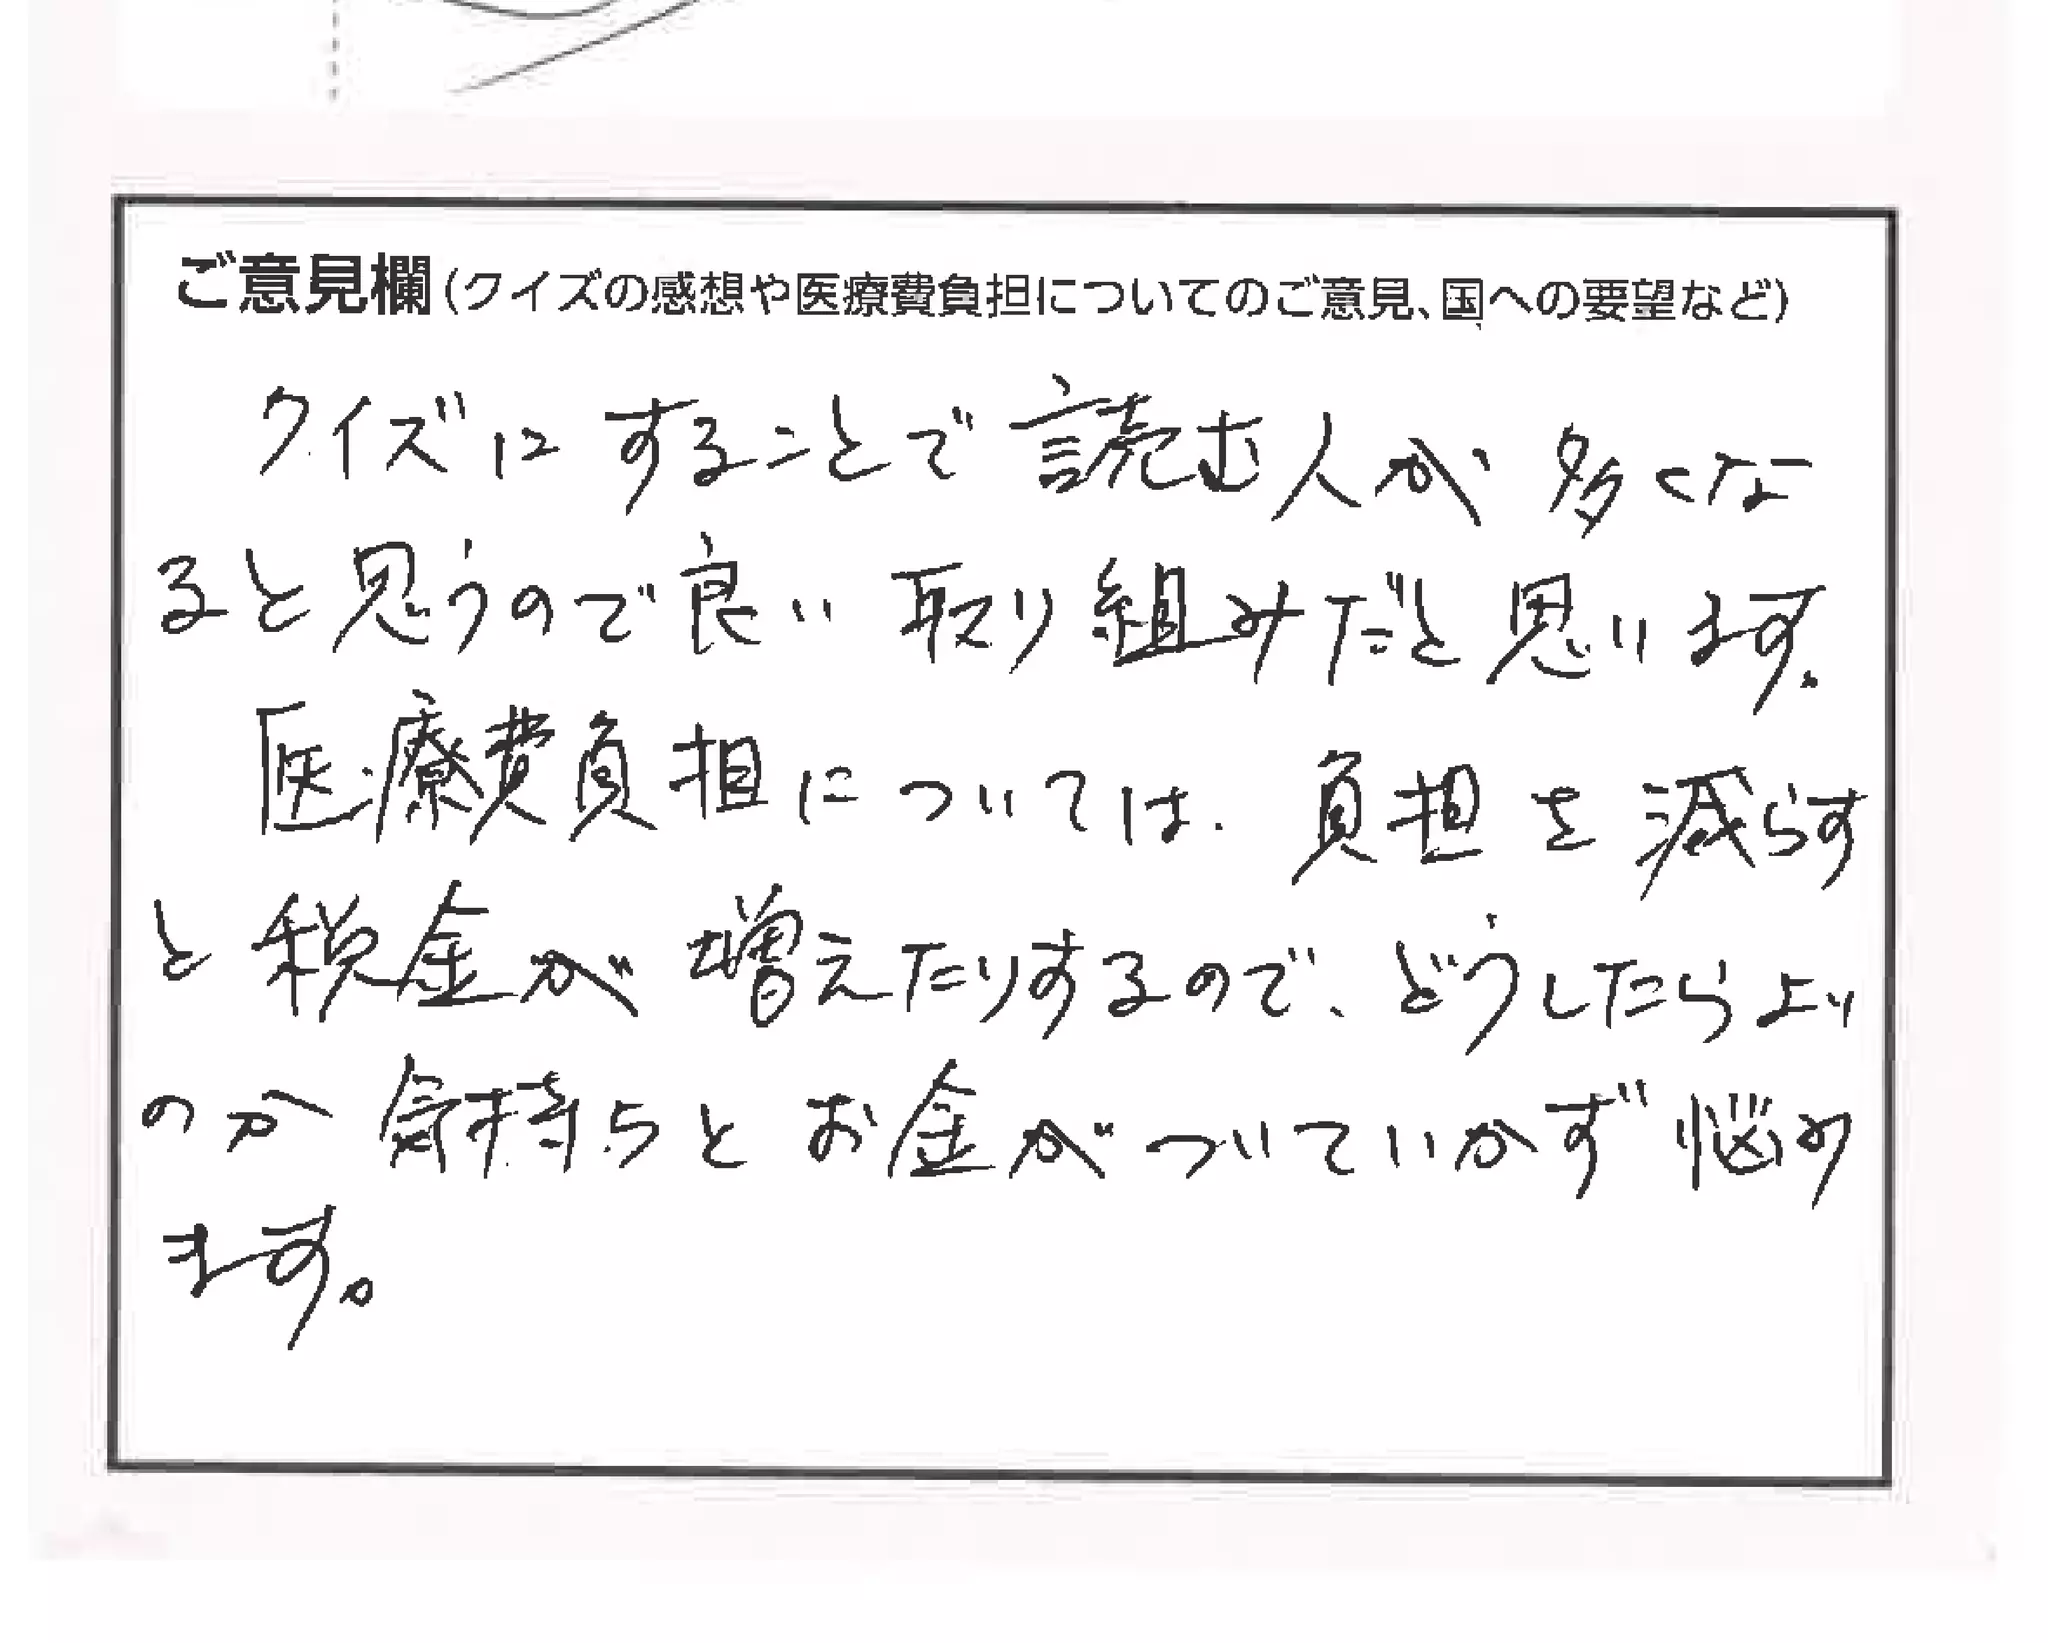 ご意見欄(クイズの感想や医療費負担についてのご意見、国への要望など)
クイズにすることで読む人が多くな
ると思うので良い取り組みだと思います。
医療費負担については、負担を減らす
と税金が増えたりするので、どうしたらよい
のか気持ちとお金がついていかず悩み
ます。